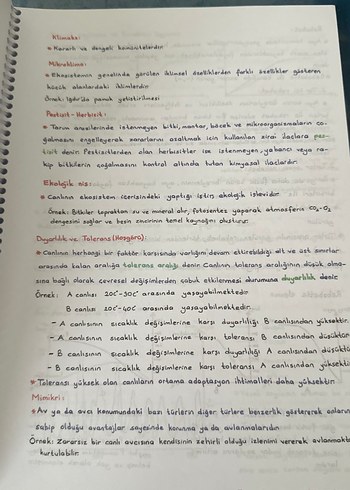 Klimaks:
* Kararlı ve dengeli komünitelerdir.
Mikroklima:
* Ekosistemin genelinde görülen iklimsel özelliklerden farklı özellikler gösteren
küçük alanlardaki iklimlerdir.
Örnek: Iğdır'da pamuk yetiştirilmesi
Pestisit - Herbisit:
* Tarım arazilerinde istenmeyen bitki, mantar, böcek ve mikroorganizmaların ço-
ğalmasını engelleyerek zararlarını azaltmak için kullanılan zirai ilaçlara pes-
tisit denir. Pestisitlerden olan herbisitler ise istenmeyen, yabancı veya ra-
kip bitkilerin çoğalmasını kontrol altında tutan kimyasal ilaçlardır.
Ekolojik niş:
* Canlının ekosistem içerisindeki yaptığı iştir, ekolojik işlevidir.
Örnek: Bitkiler topraktan su ve mineral alır, fotosentez yaparak atmosferin CO2-O2
dengesini sağlar ve besin zincirinin temel kaynağını oluşturur.
Duyarlılık ve Tolerans (Hoşgörü):
* Canlının herhangi bir faktör karşısında varlığını devam ettirebildiği alt ve üst sınırlar
arasında kalan aralığa tolerans aralığı denir. Canlının tolerans aralığının düşük olma-
sına bağlı olarak çevresel değişimlerden çabuk etkilenmesi durumuna duyarlılık denir.
Örnek: A canlısı 20C°-30C° arasında yaşayabilmektedir.
B canlısı 20C°-40C° arasında yaşayabilmektedir.
- A canlısının sıcaklık değişimlerine karşı duyarlılığı B canlısından yüksektir.
- A canlısının sıcaklık değişimlerine karşı toleransı B canlısından düşüktür
- B canlısının sıcaklık değişimlerine karşı duyarlılığı A canlısından düşüktü
- B canlısının sıcaklık değişimlerine karşı toleransı A canlısından yüksekti
* Toleransı yüksek olan canlıların ortama adaptasyon ihtimalleri daha yüksektir.
Mimikri:
* Av ya da avcı konumundaki bazı türlerin diğer türlere benzerlik göstererek onların
sahip olduğu avantajlar sayesinde korunma ya da avlanmalarıdır.
Örnek: Zararsız bir canlı avcısına kendisinin zehirli olduğu izlenimi vererek avlanmakta
kurtulabilir.